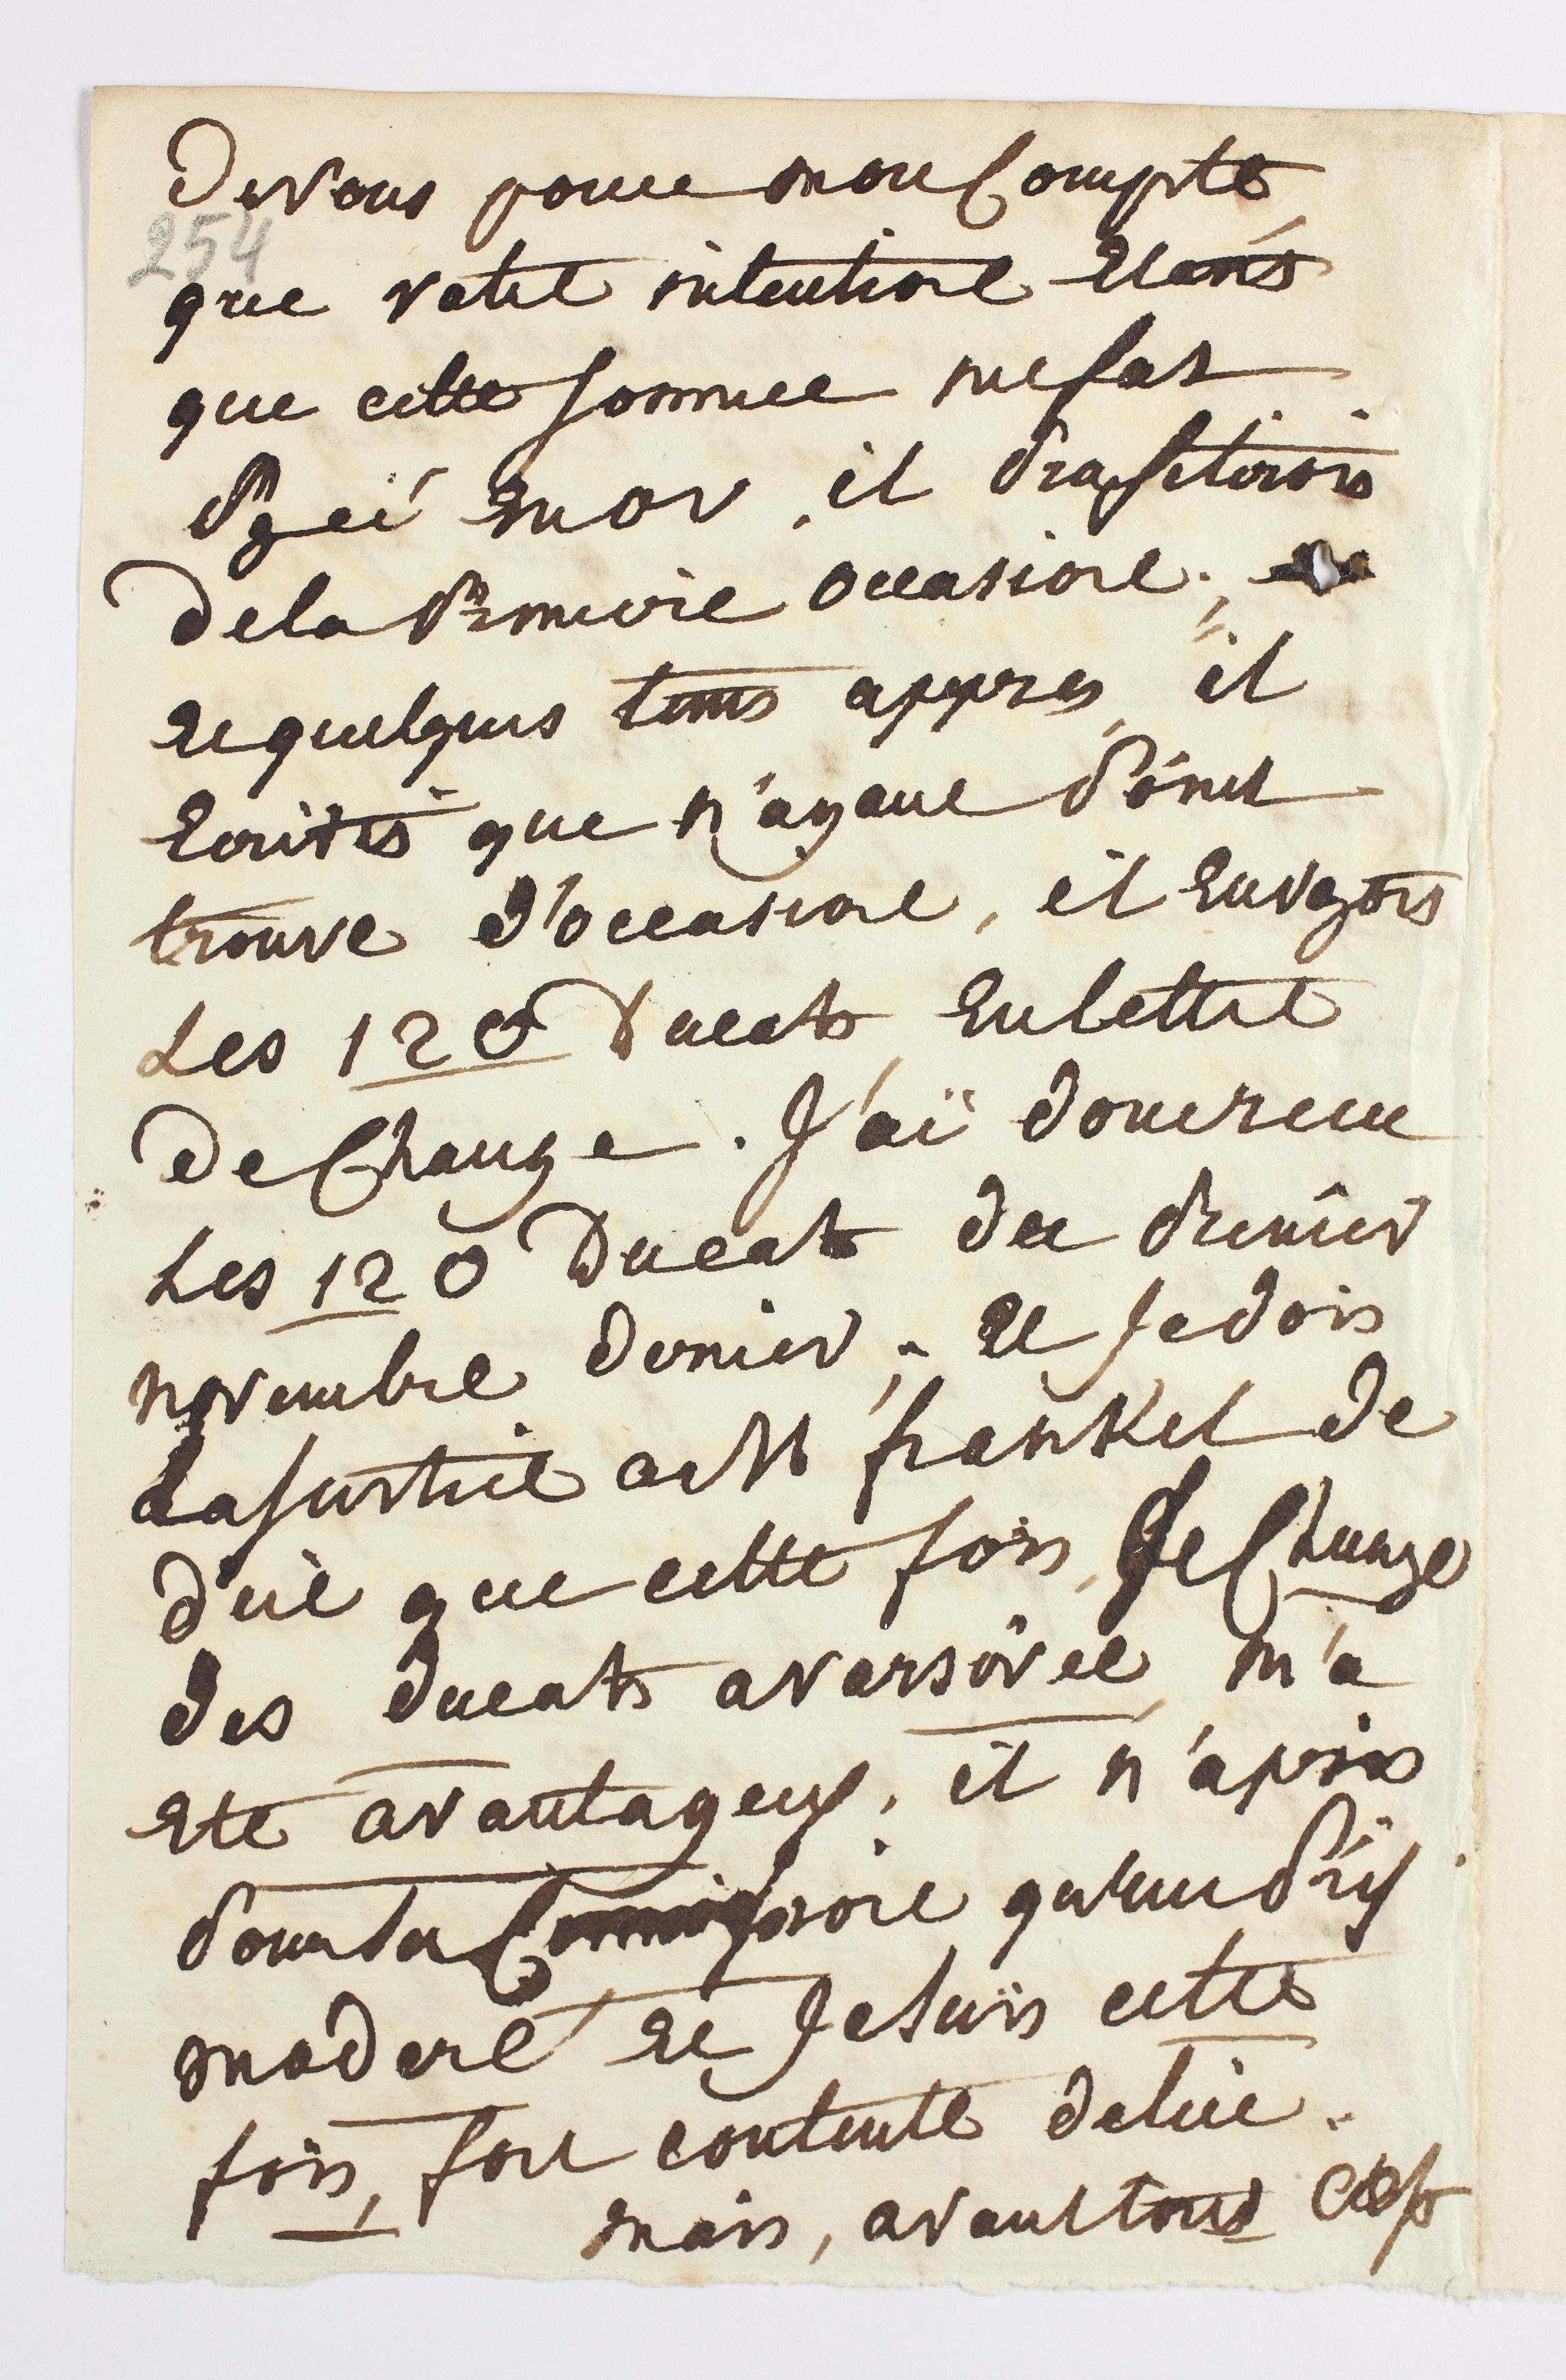 De vous pour mon Compte
254
que votre intention etant
que cette somme me fut
payé en or, il profiterois
de la premiere occasion;
et quelques tems appres, il
Ecrivis que n'ayant point
trouve d'occasion, il Envoyois
Les 120 Ducats En lettre
de Change. J'ai donc recu
Les 120 Ducats du premier
novembre dernier. et je dois
la justice a M frankel de
dire que cette fois, le Change
des ducats a varsovie, m'a
ete avantageux, il n'a pris
pour la Commission qu'un prix
moderé et Je suis cette
fois, fort contente de lui.
mais, avant tout c'est